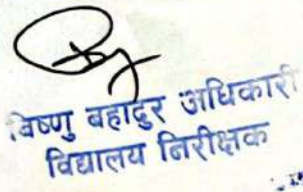 विष्णु बहादुर अधिकारी
विद्यालय निरीक्षक